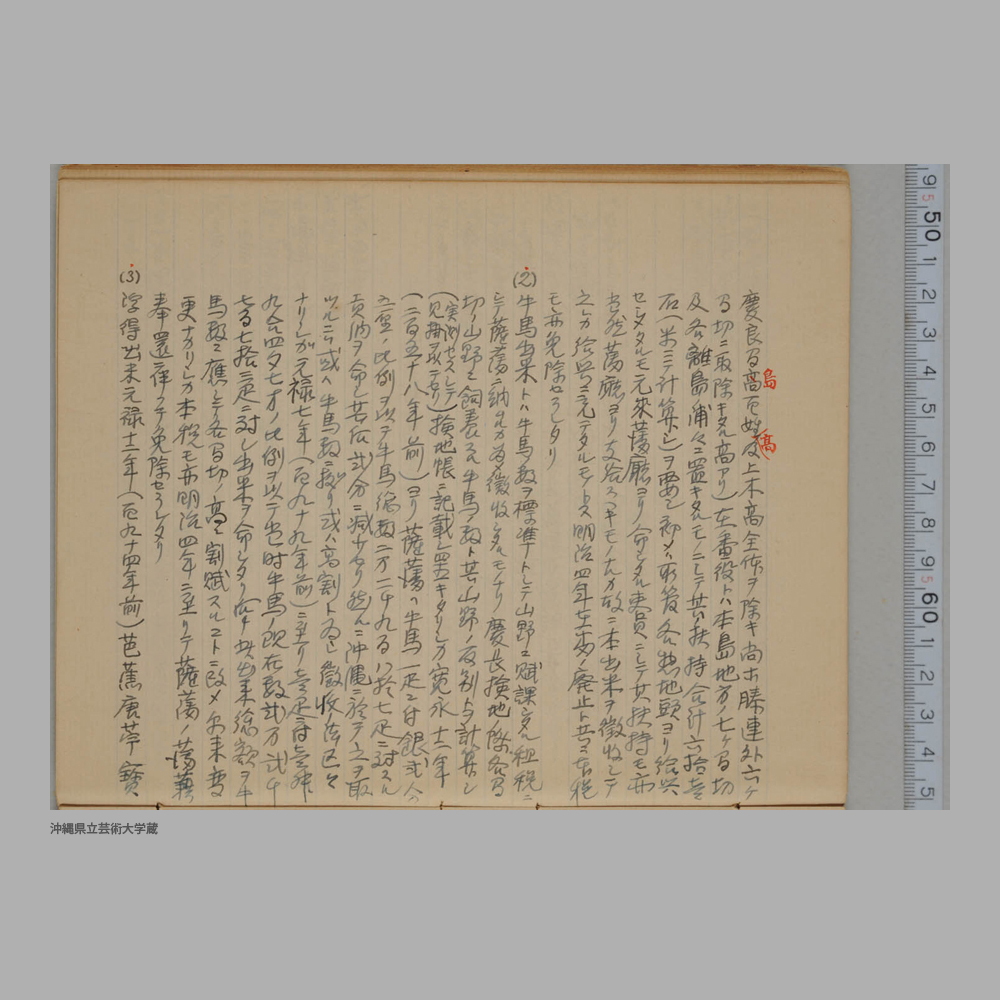 島
高
慶良間高百姓及上木高全体ヲ除キ尚ホ勝連外六ヶ
間切ニ取除キタル高アリ)在番役トハ本島地方ノ七ヶ間切
及各離島浦々ニ置キタルモノニシテ其扶持合計六拾壱
石(米ニテ計算シ)ヲ要シ初メハ所管各惣地頭ヨリ給与
セシメタルモ元来藩廳ヨリ命シタル吏員ニシテ其扶持モ亦
当然藩廳ヨリ支給スヘキモノナルカ故ニ本出米ヲ徴収シテ
之レカ給与ニ充テタルモノトス明治四年在番ノ廃止ト共ニ本税
モ亦免除セラレタリ
(2) 牛馬出米トハ牛馬数ヲ標準トシテ山野ニ賦課シタル租税ニ
シテ薩藩ニ納ムルカ為メ徴収シタルモノナリ慶長検地ノ際各間
切ノ山野ニ飼養スル牛馬ノ数ト其山野ノ反別トヲ計算シ
(実測セスシテ見掛ヲ取ニ 依リ)検地帳ニ記載シ置キタリシカ寛永十二年
(二百五十八年前)ヨリ薩藩ハ牛馬一疋ニ付銀弐分
五厘ノ比例ヲ以テ牛馬総数二万二千九百八拾七疋ニ対スル
貢納ヲ命シ其后弐分ニ減少セリ然ルニ沖縄ニ於テ之ヲ取
ルニハ或ハ牛馬数ニ拠リ或ハ高割ト為シ徴収法区々
ナリシガ元禄七年(百九十九年前)ニ至リ壱疋ニ付壱升
九合四夕七才ノ比例ヲ以テ当時牛馬ノ現在数弐万弐千
七百七拾二疋ニ対シ出米ヲ命シタリ
馬数ニ應シテ各間切ノ高ニ割賦スルコトニ改メ尓来変
更ナカリシカ本税モ亦明治四年ニ至リテ薩藩ノ藩籍
奉還ニ伴フテ免除セラレタリ
(3) 浮得出米元禄十二年(百九十四年前)芭蕉唐苧 寶
9 50 1 2 3 4 5 6 7 8 9 60 1 2 3 4 5
沖縄県立芸術大学蔵